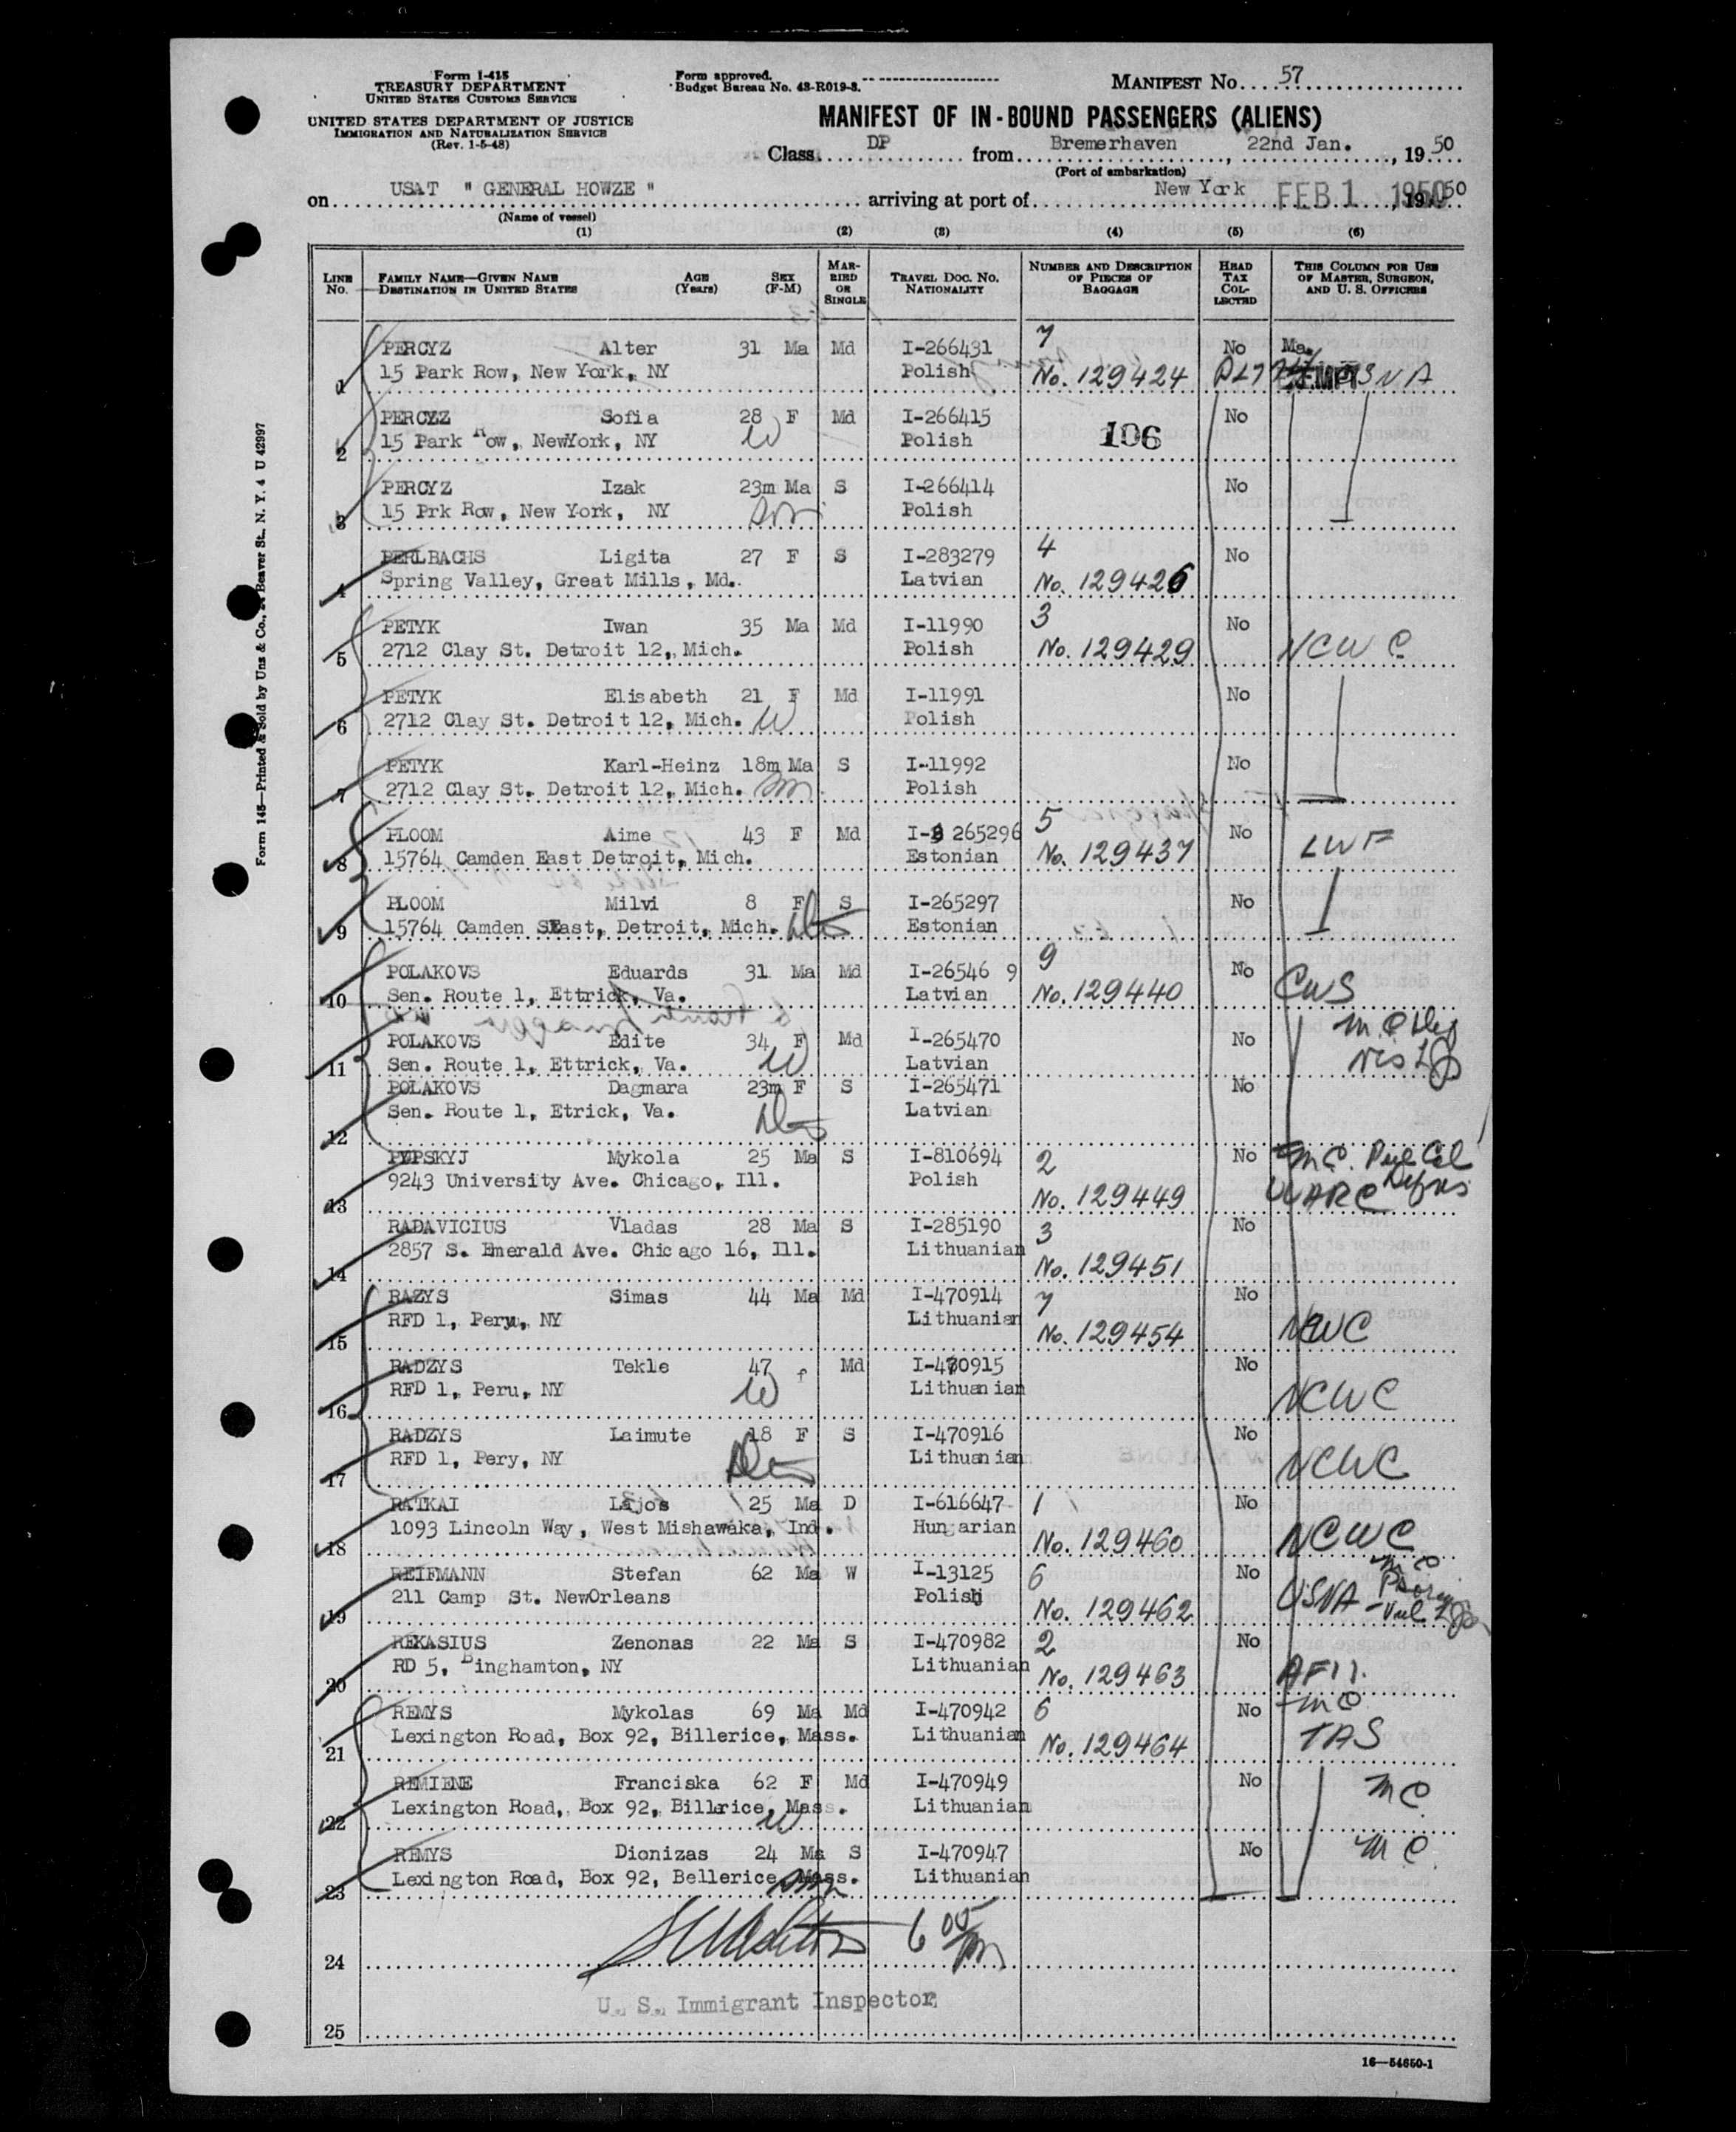 Form I-415
TREASURY DEPARTMENT
UNITED STATES CUSTOMS SERVICE
UNITED STATES DEPARTMENT OF JUSTICE
IMMIGRATION AND NATURALIZATION SERVICE
(Rev. 1-5-48)
Form approved.
Budget Bureau No. 43-R019-3.
MANIFEST No. 57
MANIFEST OF IN-BOUND PASSENGERS (ALIENS)
Class DP from Bremerhaven, 22nd Jan., 1950
(Port of embarkation)
on USAT " GENERAL HOWZE " arriving at port of New York FEB 1 1950, 1950
(Name of vessel)
(1) (2) (3) (4) (5) (6)
LINE No. FAMILY NAME—GIVEN NAME DESTINATION IN UNITED STATES AGE (Years) SEX (F-M) MARRIED OR SINGLE TRAVEL DOC. NO. NATIONALITY NUMBER AND DESCRIPTION OF PIECES OF BAGGAGE HEAD TAX COLLECTED THIS COLUMN FOR USE OF MASTER, SURGEON, AND U. S. OFFICERS
PERCYZ Alter 31 Ma Md I-266431 7 No Ma.
1 15 Park Row, New York, NY Polish No. 129424
PERCYZ Sofia 28 F Md I-266415 No
2 15 Park Row, NewYork, NY W Polish 106
PERCYZ Izak 23m Ma S I-266414 No
3 15 Prk Row, New York, NY Son Polish
PERLBACHS Ligita 27 F S I-283279 4 No
4 Spring Valley, Great Mills, Md. Latvian No. 129426
PETYK Iwan 35 Ma Md I-11990 3 No
5 2712 Clay St. Detroit 12, Mich. Polish No. 129429 NCWC
PETYK Elisabeth 21 F Md I-11991 No
6 2712 Clay St. Detroit 12, Mich. W Polish
PETYK Karl-Heinz 18m Ma S I-11992 No
7 2712 Clay St. Detroit 12, Mich. Son Polish
PLOOM Aime 43 F Md I- 265296 5 No
8 15764 Camden East Detroit, Mich. Estonian No. 129437 LWF
PLOOM Milvi 8 F S I-265297 No
9 15764 Camden East, Detroit, Mich. Estonian
POLAKOVS Eduards 31 Ma Md I-26546 9 9 No
10 Sen. Route 1, Ettrick, Va. Latvian No. 129440 CWS
POLAKOVS Edite 34 F Md I-265470 No
11 Sen. Route 1, Ettrick, Va. W Latvian
POLAKOVS Dagmara 23m F S I-265471 No
12 Sen. Route 1, Etrick, Va. Latvian
PUPSKYJ Mykola 25 Ma S I-810694 2 No
13 9243 University Ave. Chicago, Ill. Polish No. 129449
RADAVICIUS Vladas 28 Ma S I-285190 3 No
14 2857 S. Emerald Ave. Chicago 16, Ill. Lithuanian No. 129451
RAZYS Simas 44 Ma Md I-470914 7 No
15 RFD 1, Peru, NY Lithuanian No. 129454 NCWC
RADZYS Tekle 47 f Md I-470915 No
16 RFD 1, Peru, NY W Lithuanian NCWC
RADZYS Laimute 18 F S I-470916 No
17 RFD 1, Pery, NY Lithuanian NCWC
RATKAI Lajos 25 Ma D I-616647 1 No
18 1093 Lincoln Way, West Mishawaka, Ind. Hungarian No. 129460 NCWC
REIFMANN Stefan 62 Ma W I-13125 6 No
19 211 Camp St. NewOrleans Polish No. 129462 USNA
REKASIUS Zenonas 22 Ma S I-470982 2 No
20 RD 5, Binghamton, NY Lithuanian No. 129463
REMYS Mykolas 69 Ma Md I-470942 6 No MC
21 Lexington Road, Box 92, Billerice, Mass. Lithuanian No. 129464 TAS
REMIENE Franciska 62 F Md I-470949 No MC
22 Lexington Road, Box 92, Billrice, Mass. W Lithuanian
REMYS Dionizas 24 Ma S I-470947 No MC
23 Lexington Road, Box 92, Bellerice, Mass. Son Lithuanian
24
U. S. Immigrant Inspector
25
16—54650-1